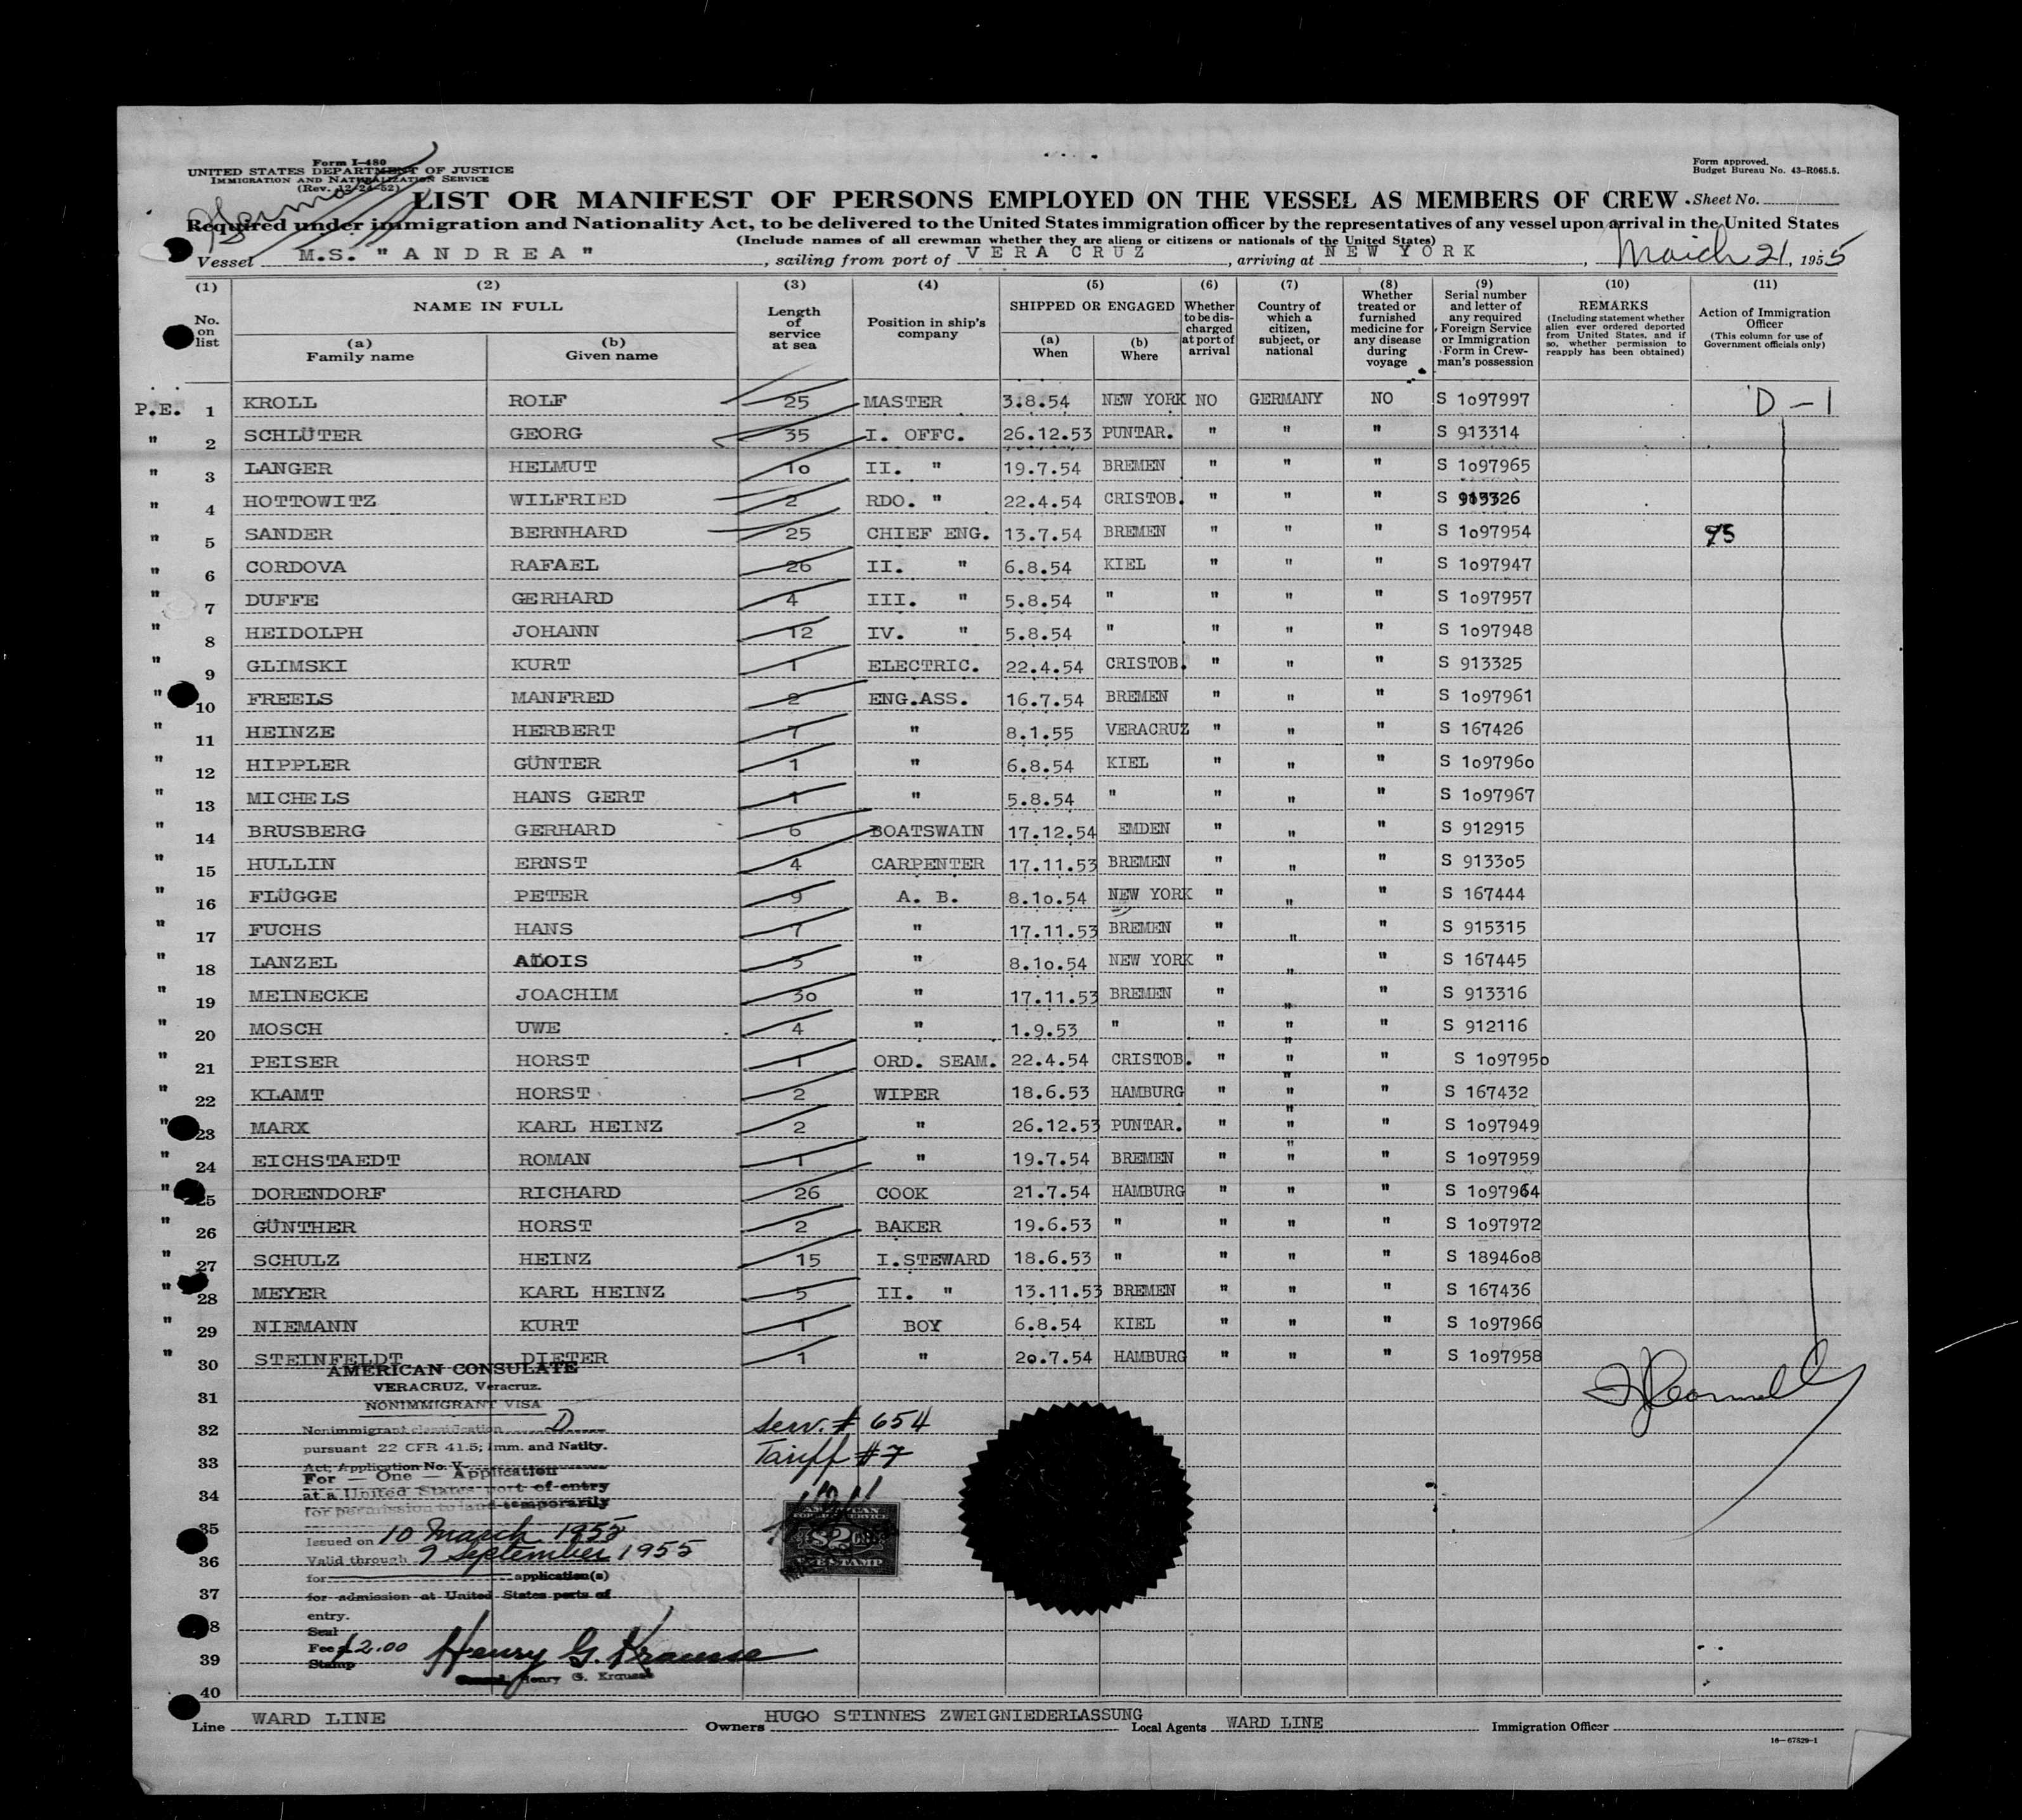 Form I-480
UNITED STATES DEPARTMENT OF JUSTICE
IMMIGRATION AND NATURALIZATION SERVICE
(Rev. 12-24-52)
Form approved.
Budget Bureau No. 43-R065.5.
LIST OR MANIFEST OF PERSONS EMPLOYED ON THE VESSEL AS MEMBERS OF CREW Sheet No.
Required under immigration and Nationality Act, to be delivered to the United States immigration officer by the representatives of any vessel upon arrival in the United States
(Include names of all crewman whether they are aliens or citizens or nationals of the United States)
Vessel M.S. "ANDREA", sailing from port of VERA CRUZ, arriving at NEW YORK, March 21, 1955
(1) (2) (3) (4) (5) (6) (7) (8) (9) (10) (11)
No. on list
NAME IN FULL
(a) Family name
(b) Given name
Length of service at sea
Position in ship's company
SHIPPED OR ENGAGED
(a) When
(b) Where
Whether to be discharged at port of arrival
Country of which a citizen, subject, or national
Whether treated or furnished medicine for any disease during voyage
Serial number and letter of any required Foreign Service or Immigration Form in Crewman's possession
REMARKS
(Including statement whether alien ever ordered deported from United States, and if so, whether permission to reapply has been obtained)
Action of Immigration Officer
(This column for use of Government officials only)
P.E. 1 KROLL ROLF 25 MASTER 3.8.54 NEW YORK NO GERMANY NO S 1o97997 D-1
" 2 SCHLÜTER GEORG 35 I. OFFC. 26.12.53 PUNTAR. " " " S 913314
" 3 LANGER HELMUT 1o II. " 19.7.54 BREMEN " " " S 1o97965
" 4 HOTTOWITZ WILFRIED 2 RDO. " 22.4.54 CRISTOB. " " " S 913326
" 5 SANDER BERNHARD 25 CHIEF ENG. 13.7.54 BREMEN " " " S 1o97954
" 6 CORDOVA RAFAEL 26 II. " 6.8.54 KIEL " " " S 1o97947
" 7 DUFFE GERHARD 4 III. " 5.8.54 " " " " S 1o97957
" 8 HEIDOLPH JOHANN 12 IV. " 5.8.54 " " " " S 1o97948
" 9 GLIMSKI KURT 1 ELECTRIC. 22.4.54 CRISTOB. " " " S 913325
" 10 FREELS MANFRED 2 ENG.ASS. 16.7.54 BREMEN " " " S 1o97961
" 11 HEINZE HERBERT 7 " 8.1.55 VERACRUZ " " " S 167426
" 12 HIPPLER GÜNTER 1 " 6.8.54 KIEL " " " S 1o9796o
" 13 MICHELS HANS GERT 1 " 5.8.54 " " " " S 1o97967
" 14 BRUSBERG GERHARD 6 BOATSWAIN 17.12.54 EMDEN " " " S 912915
" 15 HULLIN ERNST 4 CARPENTER 17.11.53 BREMEN " " " S 9133o5
" 16 FLÜGGE PETER 9 A. B. 8.1o.54 NEW YORK " " " S 167444
" 17 FUCHS HANS 7 " 17.11.53 BREMEN " " " S 915315
" 18 LANZEL ALOIS 3 " 8.1o.54 NEW YORK " " " S 167445
" 19 MEINECKE JOACHIM 3o " 17.11.53 BREMEN " " " S 913316
" 20 MOSCH UWE 4 " 1.9.53 " " " " S 912116
" 21 PEISER HORST 1 ORD. SEAM. 22.4.54 CRISTOB. " " " S 1o9795o
" 22 KLAMT HORST 2 WIPER 18.6.53 HAMBURG " " " S 167432
" 23 MARX KARL HEINZ 2 " 26.12.53 PUNTAR. " " " S 1o97949
" 24 EICHSTAEDT ROMAN 1 " 19.7.54 BREMEN " " " S 1o97959
" 25 DORENDORF RICHARD 26 COOK 21.7.54 HAMBURG " " " S 1o97964
" 26 GÜNTHER HORST 2 BAKER 19.6.53 " " " " S 1o97972
" 27 SCHULZ HEINZ 15 I.STEWARD 18.6.53 " " " " S 18946o8
" 28 MEYER KARL HEINZ 5 II. " 13.11.53 BREMEN " " " S 167436
" 29 NIEMANN KURT 1 BOY 6.8.54 KIEL " " " S 1o97966
" 30 STEINFELDT DIETER 1 " 2o.7.54 HAMBURG " " " S 1o97958
31
32
33
34
35
36
37
38
39
40
AMERICAN CONSULATE
VERACRUZ, Veracruz.
NONIMMIGRANT VISA
Nonimmigrant classification D
pursuant 22 CFR 41.5; Imm. and Natlty.
Act, Application No. V
For — One — Application
at a United States port of entry
for permission to land temporarily
Issued on 10 March 1955
Valid through 9 September 1955
for application(s)
for admission at United States ports of
entry.
Seal
Fee $2.00
Stamp
Henry G. Krausse
Henry G. Krausse
Serv. # 654
Tariff #7
AMERICAN
FOREIGN SERVICE
$2
FEE STAMP
Line WARD LINE Owners HUGO STINNES ZWEIGNIEDERLASSUNG Local Agents WARD LINE Immigration Officer
16-67529-1